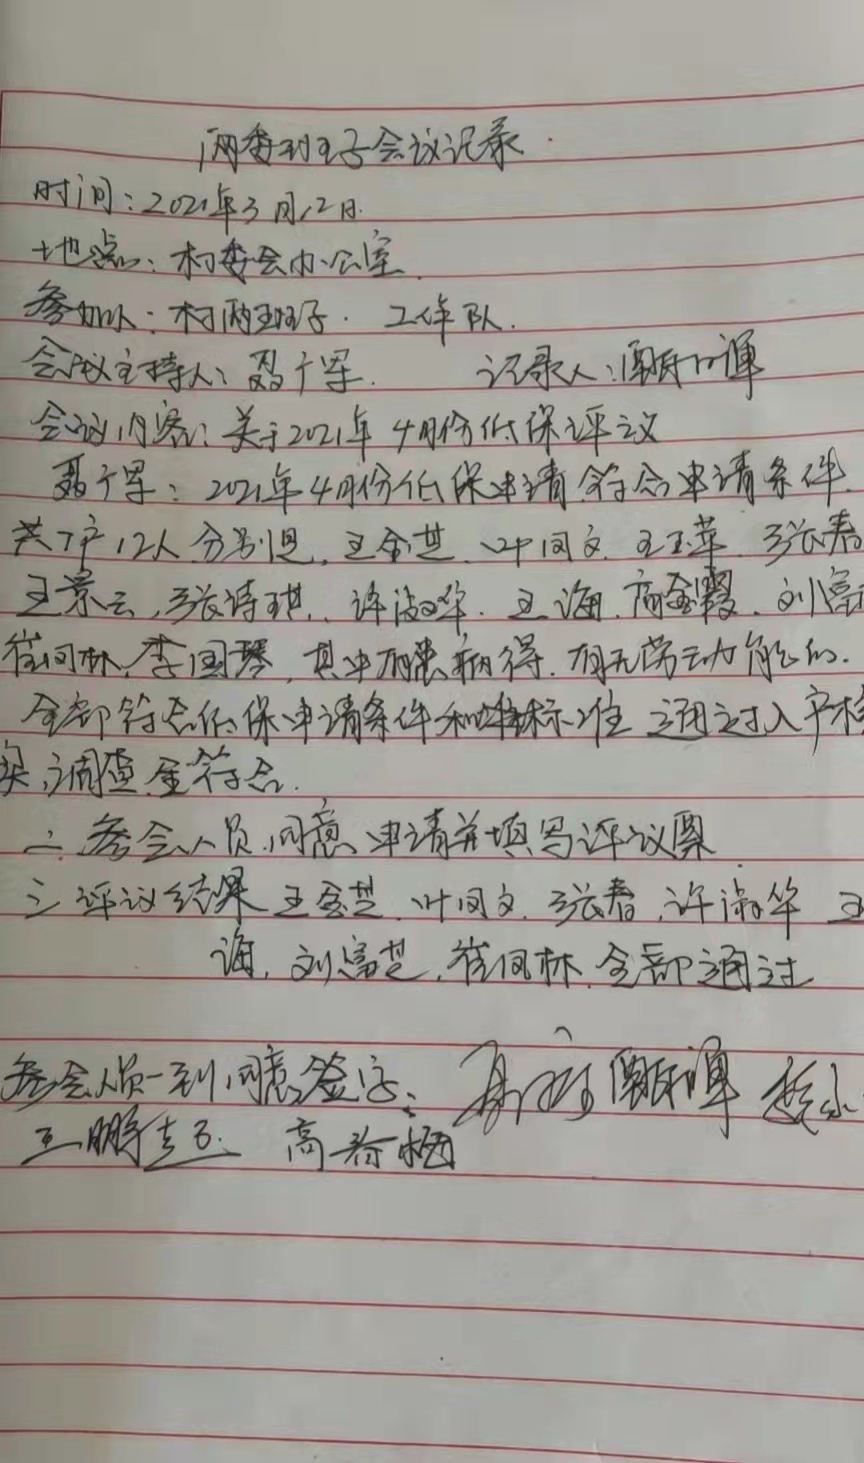 两委班子会议记录
时间：2021年3月12日.
地点：村委会办公室.
参加人：村两班子. 工作队.
会议主持人：聂广军. 记录人：
会议内容：关于2021年4月份低保评议
聂广军：2021年4月份低保申请符合申请条件.
共7户12人分别是.王金芝.叶同文.王玉苹.张春
王景云,张诗琪.许淑华.王海.商金霞.刘富
崔同林.李国琴,其中有患病得.有无劳动能的.
全部符合低保申请条件和标准 通过入户核
实,调查全符合.
二.参会人员同意申请并填写评议票
三评议结果王金芝.叶同文.张春.许淑华 王
海.刘富芝.崔同林.全部通过
参会人员一致同意签字：
王鹏 高春梅